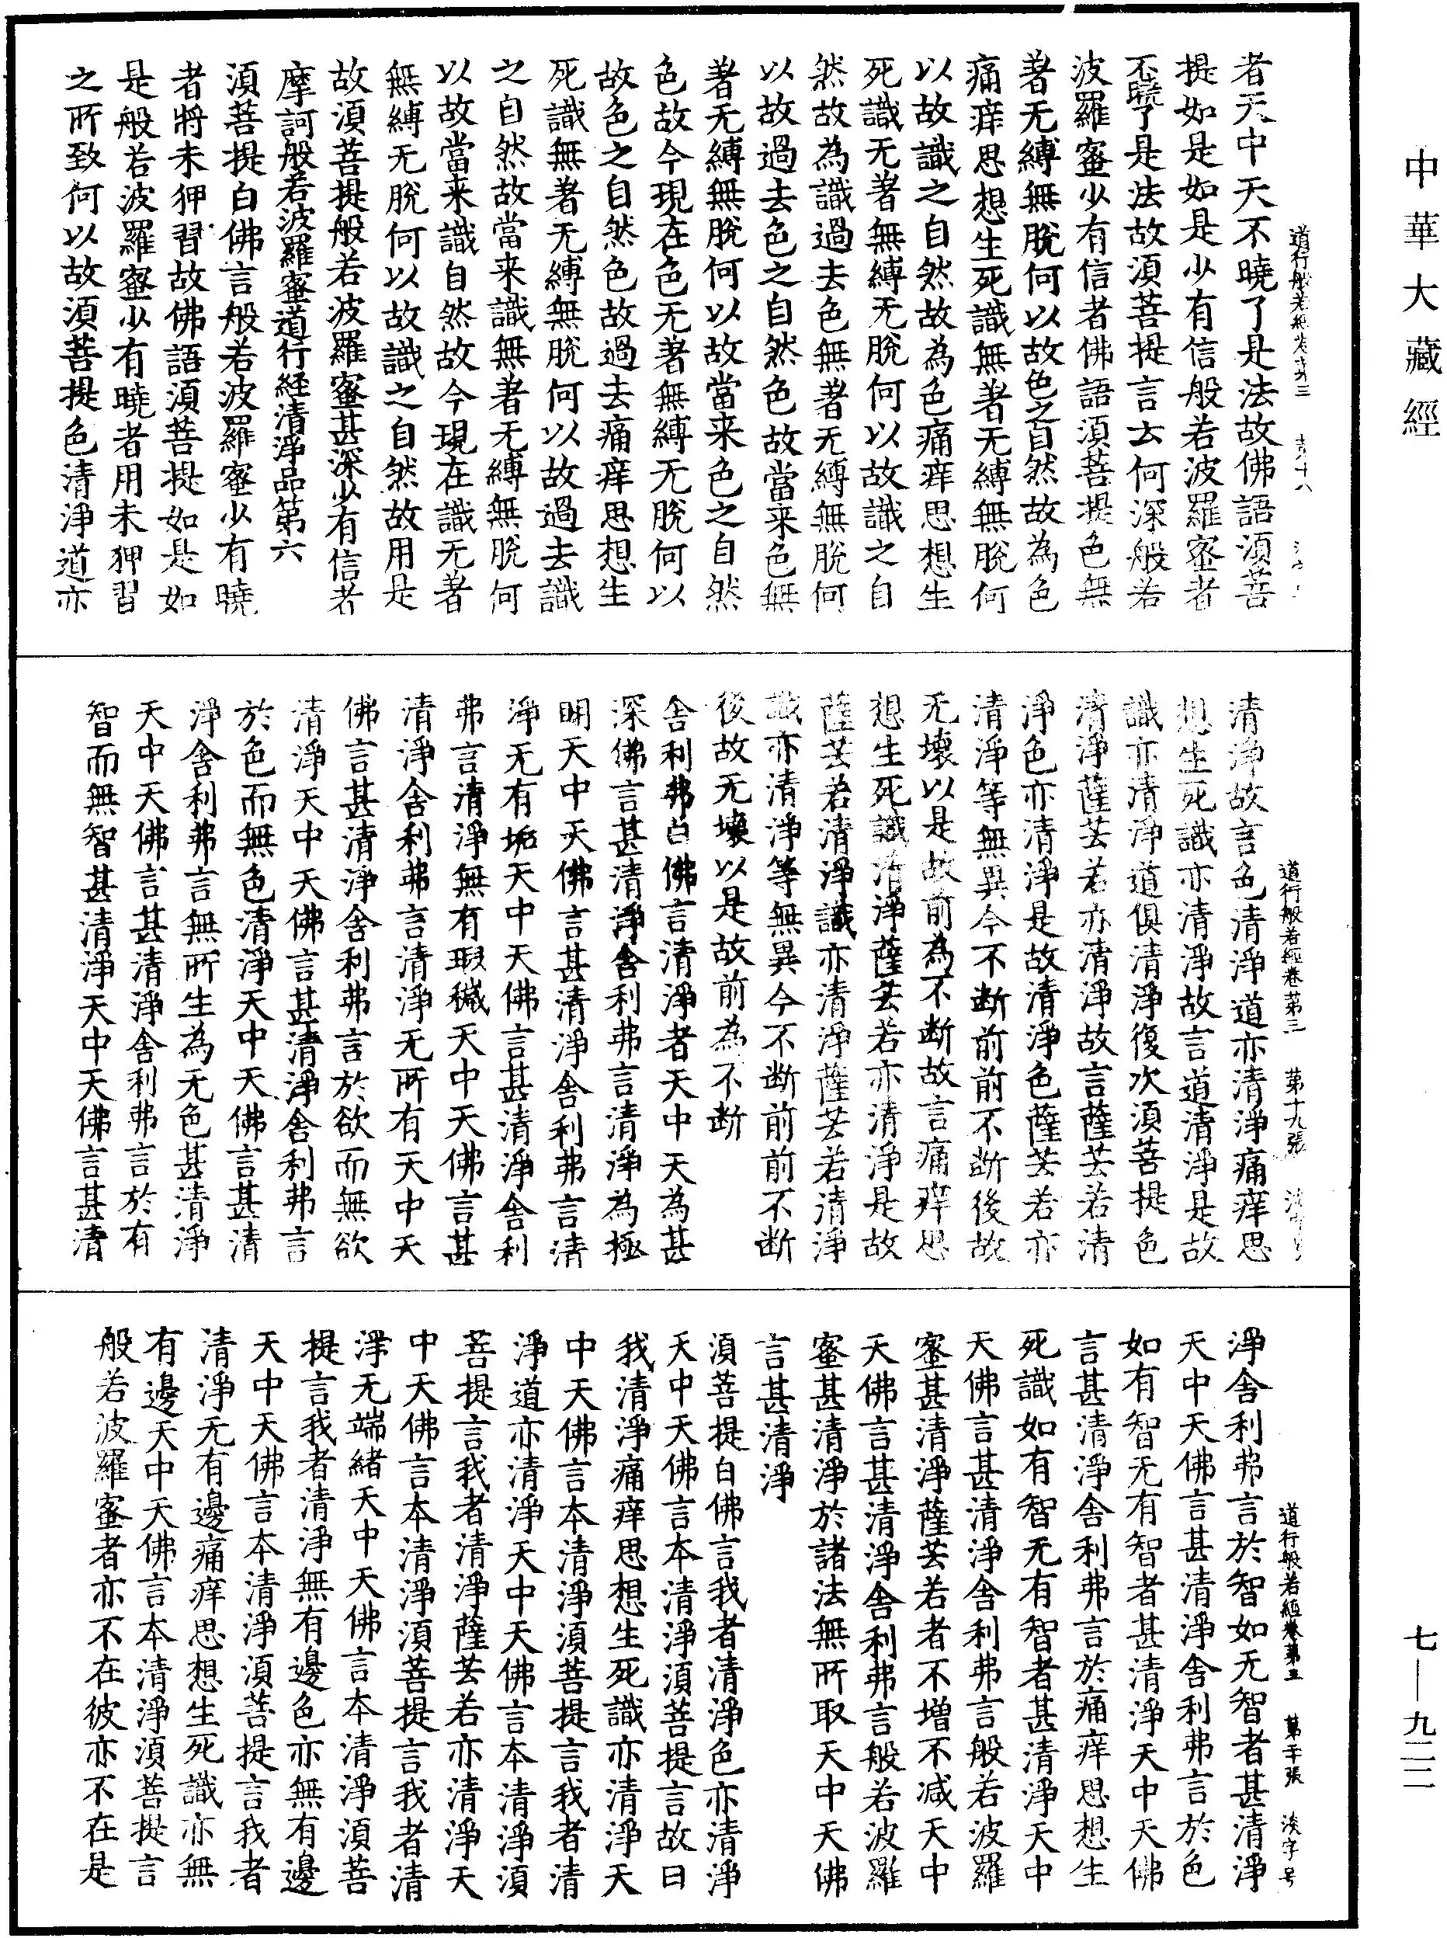 中華大藏經
七—九二二
道行般若經卷第三
者天中天不曉了是法故佛語須菩
提如是如是少有信般若波羅蜜者
不曉了是法故須菩提言云何深般若
波羅蜜少有信者佛語須菩提色無
著无縛無脫何以故色之自然故為色
痛痒思想生死識無著无縛無脫何
以故識之自然故為色痛痒思想生
死識无著無縛无脫何以故識之自
然故為識過去色無著无縛無脫何
以故過去色之自然色故當来色無
著无縛無脫何以故當来色之自然
色故今現在色无著無縛无脫何以
故色之自然色故過去痛痒思想生
死識無著无縛無脫何以故過去識
之自然故當来識無著无縛無脫何
以故當来識自然故今現在識无著
無縛无脫何以故識之自然故用是
故須菩提般若波羅蜜甚深少有信者
摩訶般若波羅蜜道行經清淨品第六
須菩提白佛言般若波羅蜜少有曉
者將未狎習故佛語須菩提如是如
是般若波羅蜜少有曉者用未狎習
之所致何以故須菩提色清淨道亦
道行般若經卷第三 第十九張
清淨故言色清淨道亦清淨痛痒思
想生死識亦清淨故言道清淨是故
識亦清淨道俱清淨復次須菩提色
清淨薩芸若亦清淨故言薩芸若清
淨色亦清淨是故清淨色薩芸若亦
清淨等無異今不斷前前不斷後故
无壞以是故前為不斷故言痛痒思
想生死識清淨薩芸若亦清淨是故
薩芸若清淨識亦清淨薩芸若清淨
識亦清淨等無異今不斷前前不斷
後故无壞以是故前為不斷
舍利弗白佛言清淨者天中天為甚
深佛言甚清淨舍利弗言清淨為極
明天中天佛言甚清淨舍利弗言清
淨无有垢天中天佛言甚清淨舍利
弗言清淨無有瑕穢天中天佛言甚
清淨舍利弗言清淨无所有天中天
佛言甚清淨舍利弗言於欲而無欲
清淨天中天佛言甚清淨舍利弗言
於色而無色清淨天中天佛言甚清
淨舍利弗言無所生為无色甚清淨
天中天佛言甚清淨舍利弗言於有
智而無智甚清淨天中天佛言甚清
道行般若經卷第三 第二十張 淡字号
淨舍利弗言於智如无智者甚清淨
天中天佛言甚清淨舍利弗言於色
如有智无有智者甚清淨天中天佛
言甚清淨舍利弗言於痛痒思想生
死識如有智无有智者甚清淨天中
天佛言甚清淨舍利弗言般若波羅
蜜甚清淨薩芸若者不增不減天中
天佛言甚清淨舍利弗言般若波羅
蜜甚清淨於諸法無所取天中天佛
言甚清淨
須菩提白佛言我者清淨色亦清淨
天中天佛言本清淨須菩提言故曰
我清淨痛痒思想生死識亦清淨天
中天佛言本清淨須菩提言我者清
淨道亦清淨天中天佛言本清淨須
菩提言我者清淨薩芸若亦清淨天
中天佛言本清淨須菩提言我者清
淨无端緒天中天佛言本清淨須菩
提言我者清淨無有邊色亦無有邊
天中天佛言本清淨須菩提言我者
清淨无有邊痛痒思想生死識亦無
有邊天中天佛言本清淨須菩提言
般若波羅蜜者亦不在彼亦不在是